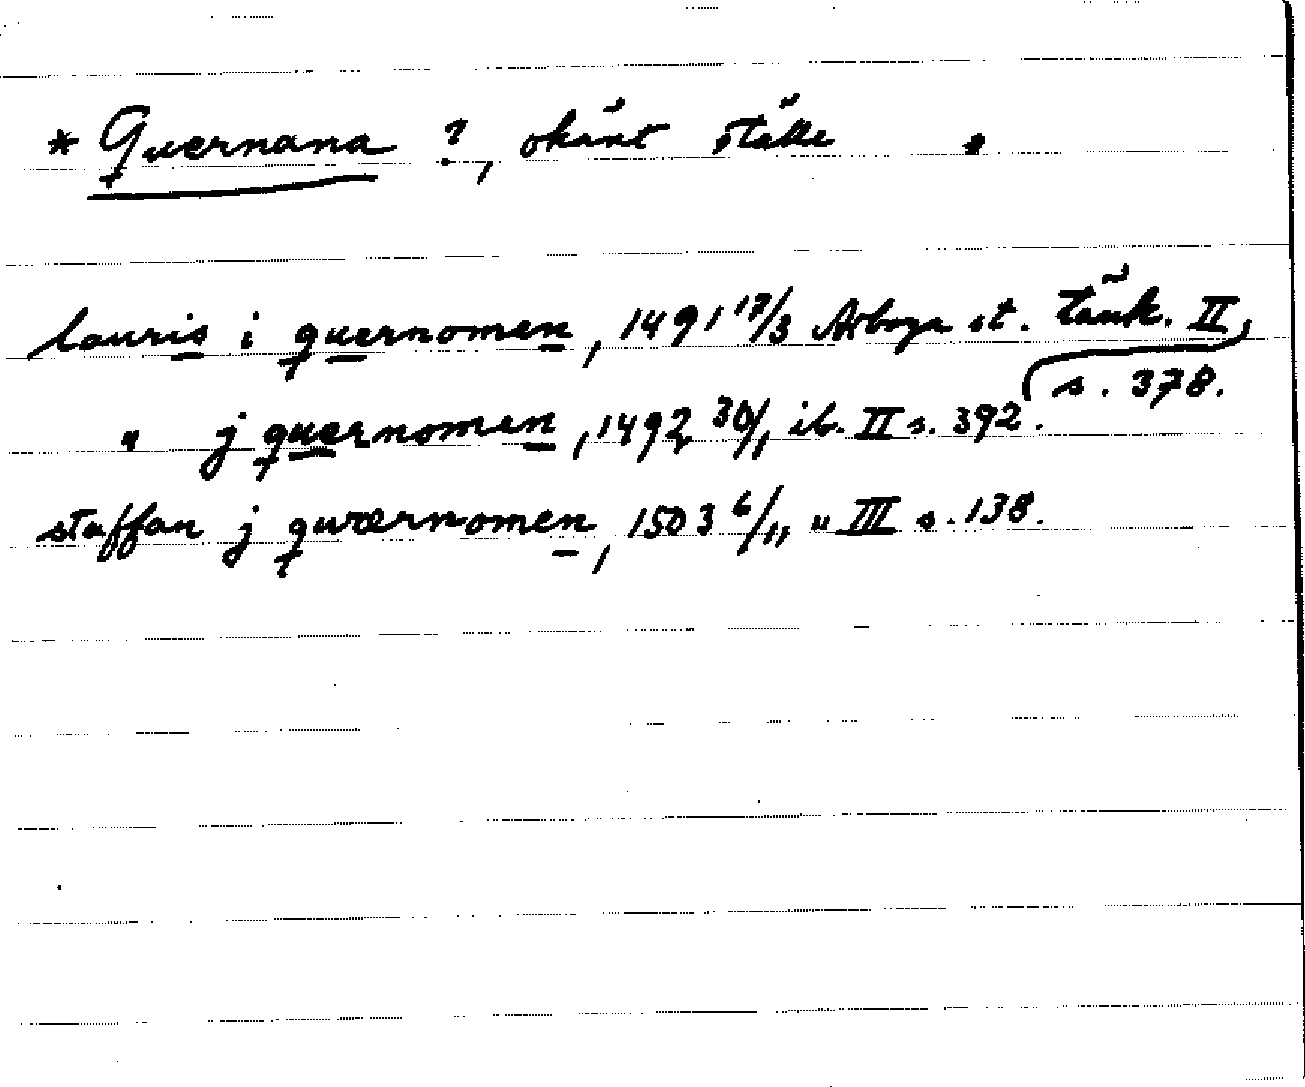 * Quernana ?, okänt ställe *
lauris i quernomen, 1491 17/3 Arboga st. tänk. II,
s. 378.
" j quernomen, 1492 30/1 ib. II s. 392.
staffan j qwærnomen, 1503 6/11 " III s. 138.